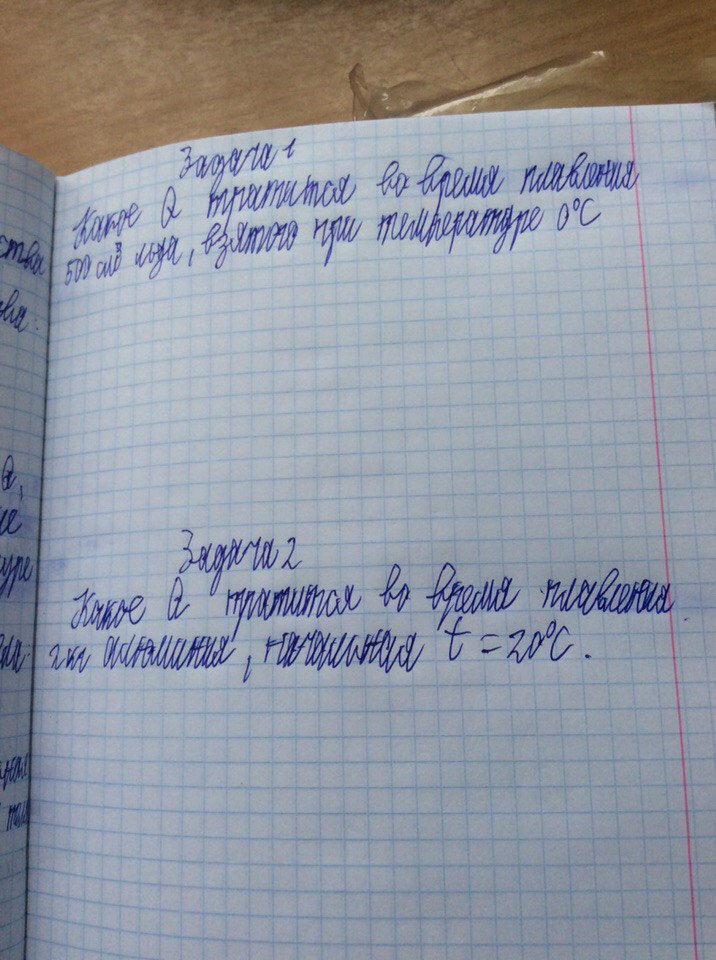 Задача 1
Какое Q тратится во время плавления
500 см³ льда, взятого при температуре 0°C
Задача 2
Какое Q тратится во время плавления
2 кг алюминия, начальная t = 20°C.